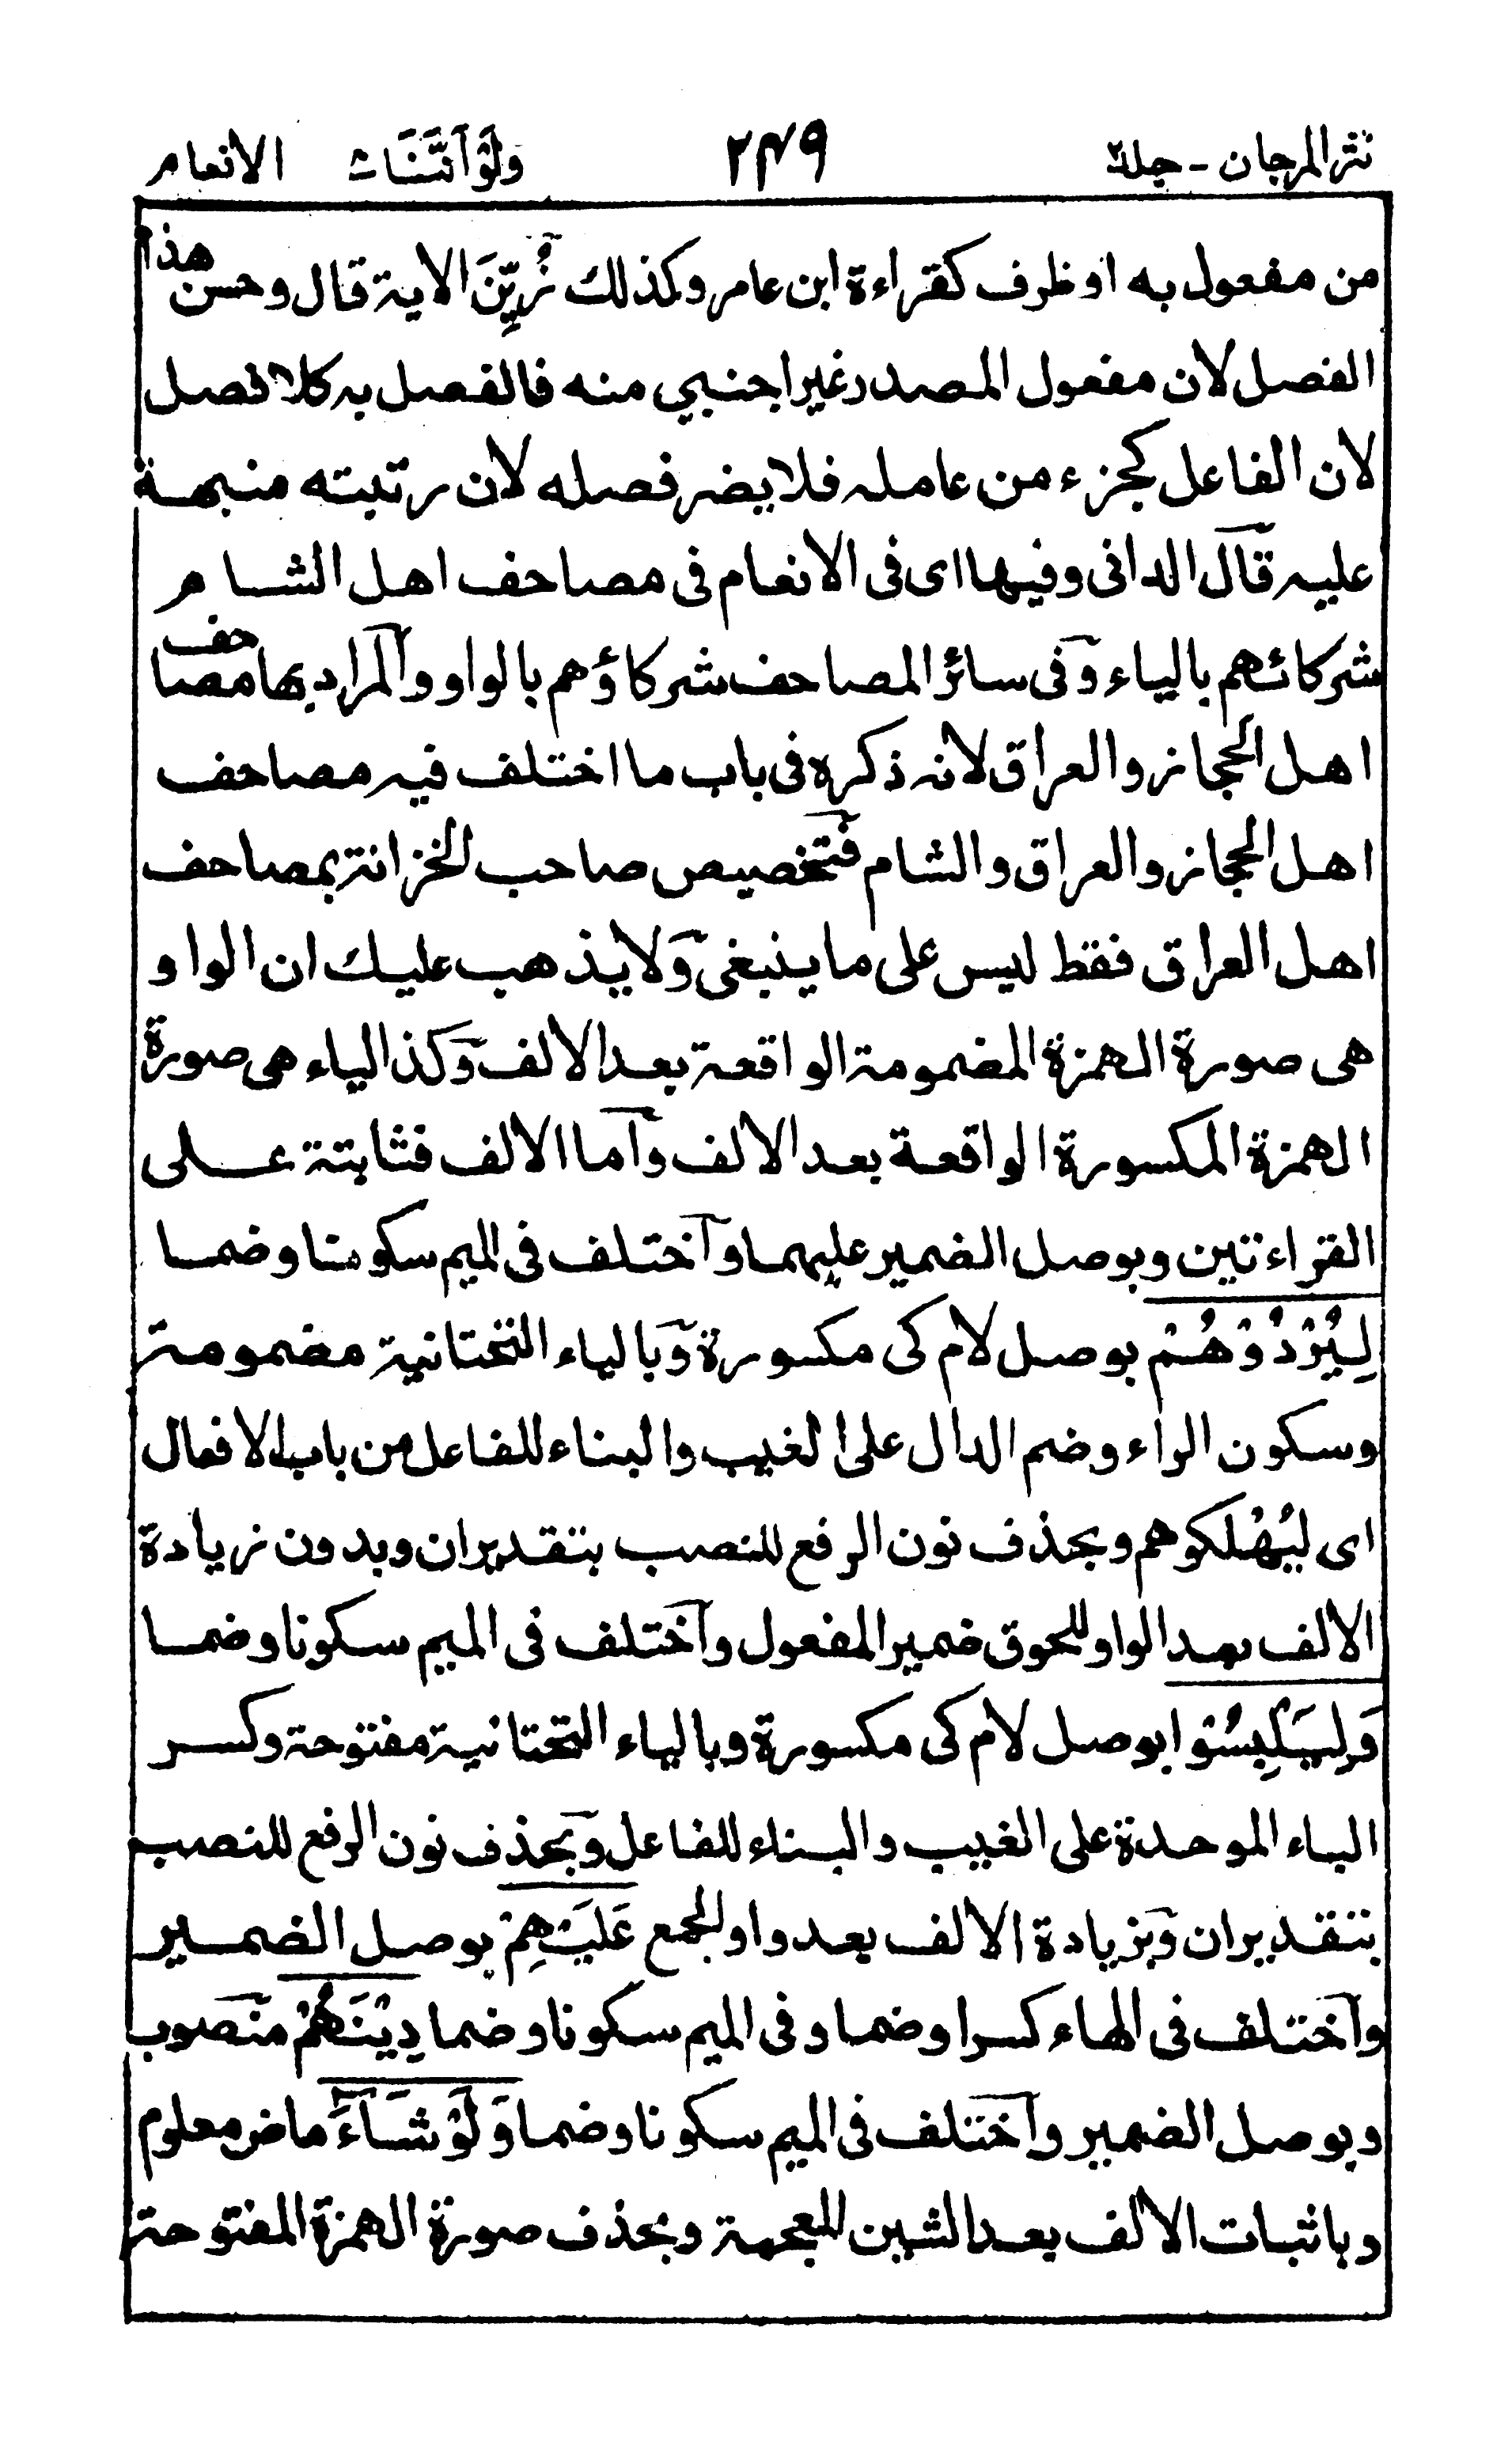 نثر المرجان - جلد٢ ٢٤٩ ولو اننا ٨ الانعام
من مفعول به او ظرف كقراءة ابن عامر وكذلك زُيِّنَ الاية قال وحسن هذا
الفصل لان مفعول المصدر غير اجنبي منه فالفصل به كلا فصل
لان الفاعل كجزء من عامله فلا يضر فصله لان رتبته منبهة
عليه قال الدانى وفيها اى فى الانعام فى مصاحف اهل الشام
شركائهم بالياء وفى سائر المصاحف شركاؤهم بالواو والمراد بها مصاحف
اهل الحجاز والعراق لانه ذكره فى باب ما اختلف فيه مصاحف
اهل الحجاز والعراق والشام فتخصيص صاحب الخزانة بمصاحف
اهل العراق فقط ليس على ما ينبغى ولا يذهب عليك ان الواو
هى صورة الهمزة المضمومة الواقعة بعد الالف وكذا الياء هى صورة
الهمزة المكسورة الواقعة بعد الالف واما الالف فثابتة على
القراءتين وبوصل الضمير عليهما واختلف فى الميم سكونا وضما
لِيُرْدُوْهُمْ بوصل لام كى مكسورة وبالياء التحتانية مضمومة
وسكون الراء وضم الدال على الغيب والبناء للفاعل من باب الافعال
اى ليُهْلكوهم وبحذف نون الرفع للنصب بتقدير ان وبدون زيادة
الالف بعد الواو للحوق ضمير المفعول واختلف فى الميم سكونا وضما
وَلِيَلْبِسُوْا بوصل لام كى مكسورة وبالياء التحتانية مفتوحة وكسر
الباء الموحدة على الغيب والبناء للفاعل وبحذف نون الرفع للنصب
بتقدير ان وبزيادة الالف بعد واو الجمع عَلَيْهِمْ بوصل الضمير
واختلف فى الهاء كسرا وضما وفى الميم سكونا وضما دِيْنَهُمْ منصوب
وبوصل الضمير واختلف فى الميم سكونا وضما وَلَوْ شَآءَ ماض معلوم
وباثبات الالف بعد الشين المعجمة وبحذف صورة الهمزة المفتوحة